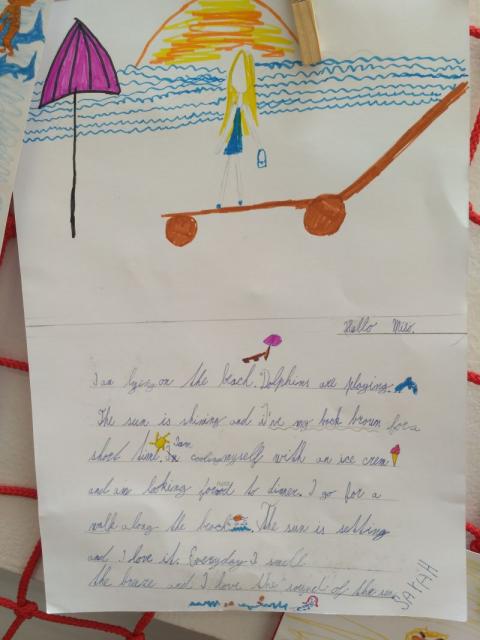 Hello Miss.
I am lying on the beach. Dolphins are playing.
The sun is shining and i've my back brown for a
short time. I am cooling myself with an ice crem
and im looking forward to dinner. I go for a
walk along the beach. The sun is setting
and I love it. Everyday I smell
the braze and I love the "sound" of the sea.
SARAH